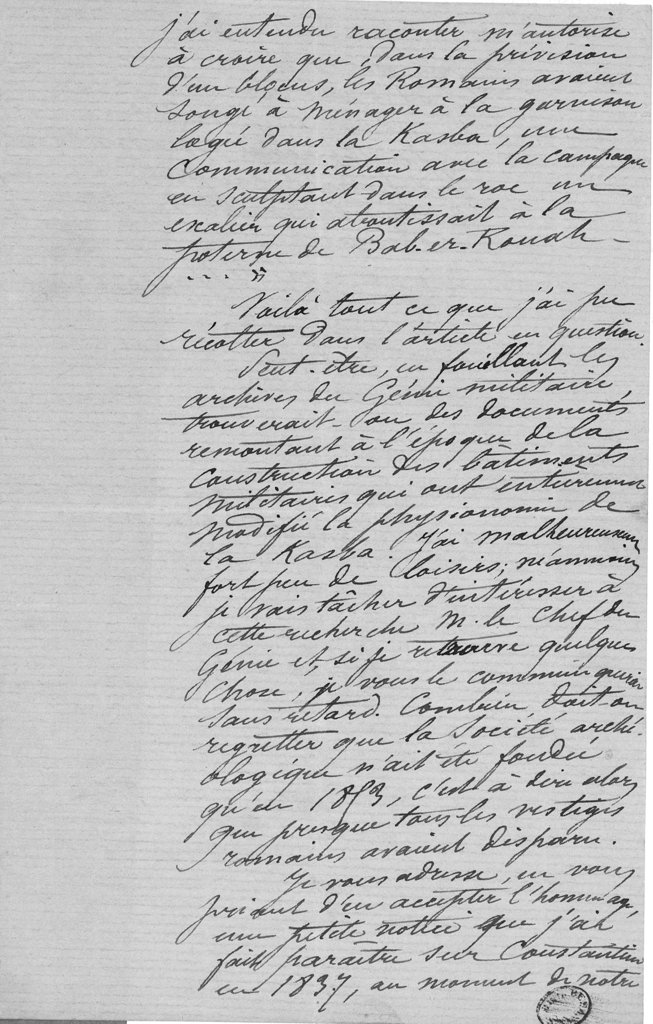 j'ai entendu raconter m'autorise
à croire que, dans la prévision
d'un blocus, les Romains avaient
songé à ménager à la garnison
logée dans la Kasba, une
communication avec la campagne
en sculptant dans le roc un
escalier qui aboutissait à la
poterne de Bab-er-Rouah -
... »
Voilà tout ce que j'ai pu
récolter dans l'article en question.
Peut-être, en fouillant les
archives du Génie militaire,
trouverait-on des documents
remontant à l'époque de la
construction des bâtiments
militaires qui ont entièrement
modifié la physionomie de
la Kasba. J'ai malheureusem
fort peu de loisirs; néanmoins
je vais tâcher d'intéresser à
cette recherche M. le Chef du
Génie et, si je retrouve quelque
chose, je vous le communiquerai
sans retard. Combien doit-on
regretter que la Société arché-
ologique n'ait été fondée
qu'en 1853, c'est à dire alors
que presque tous les vestiges
romains avaient disparu.
Je vous adresse, en vous
priant d'en accepter l'hommage,
une petite notice que j'ai
fait paraître sur Constantine
en 1837, au moment de notre